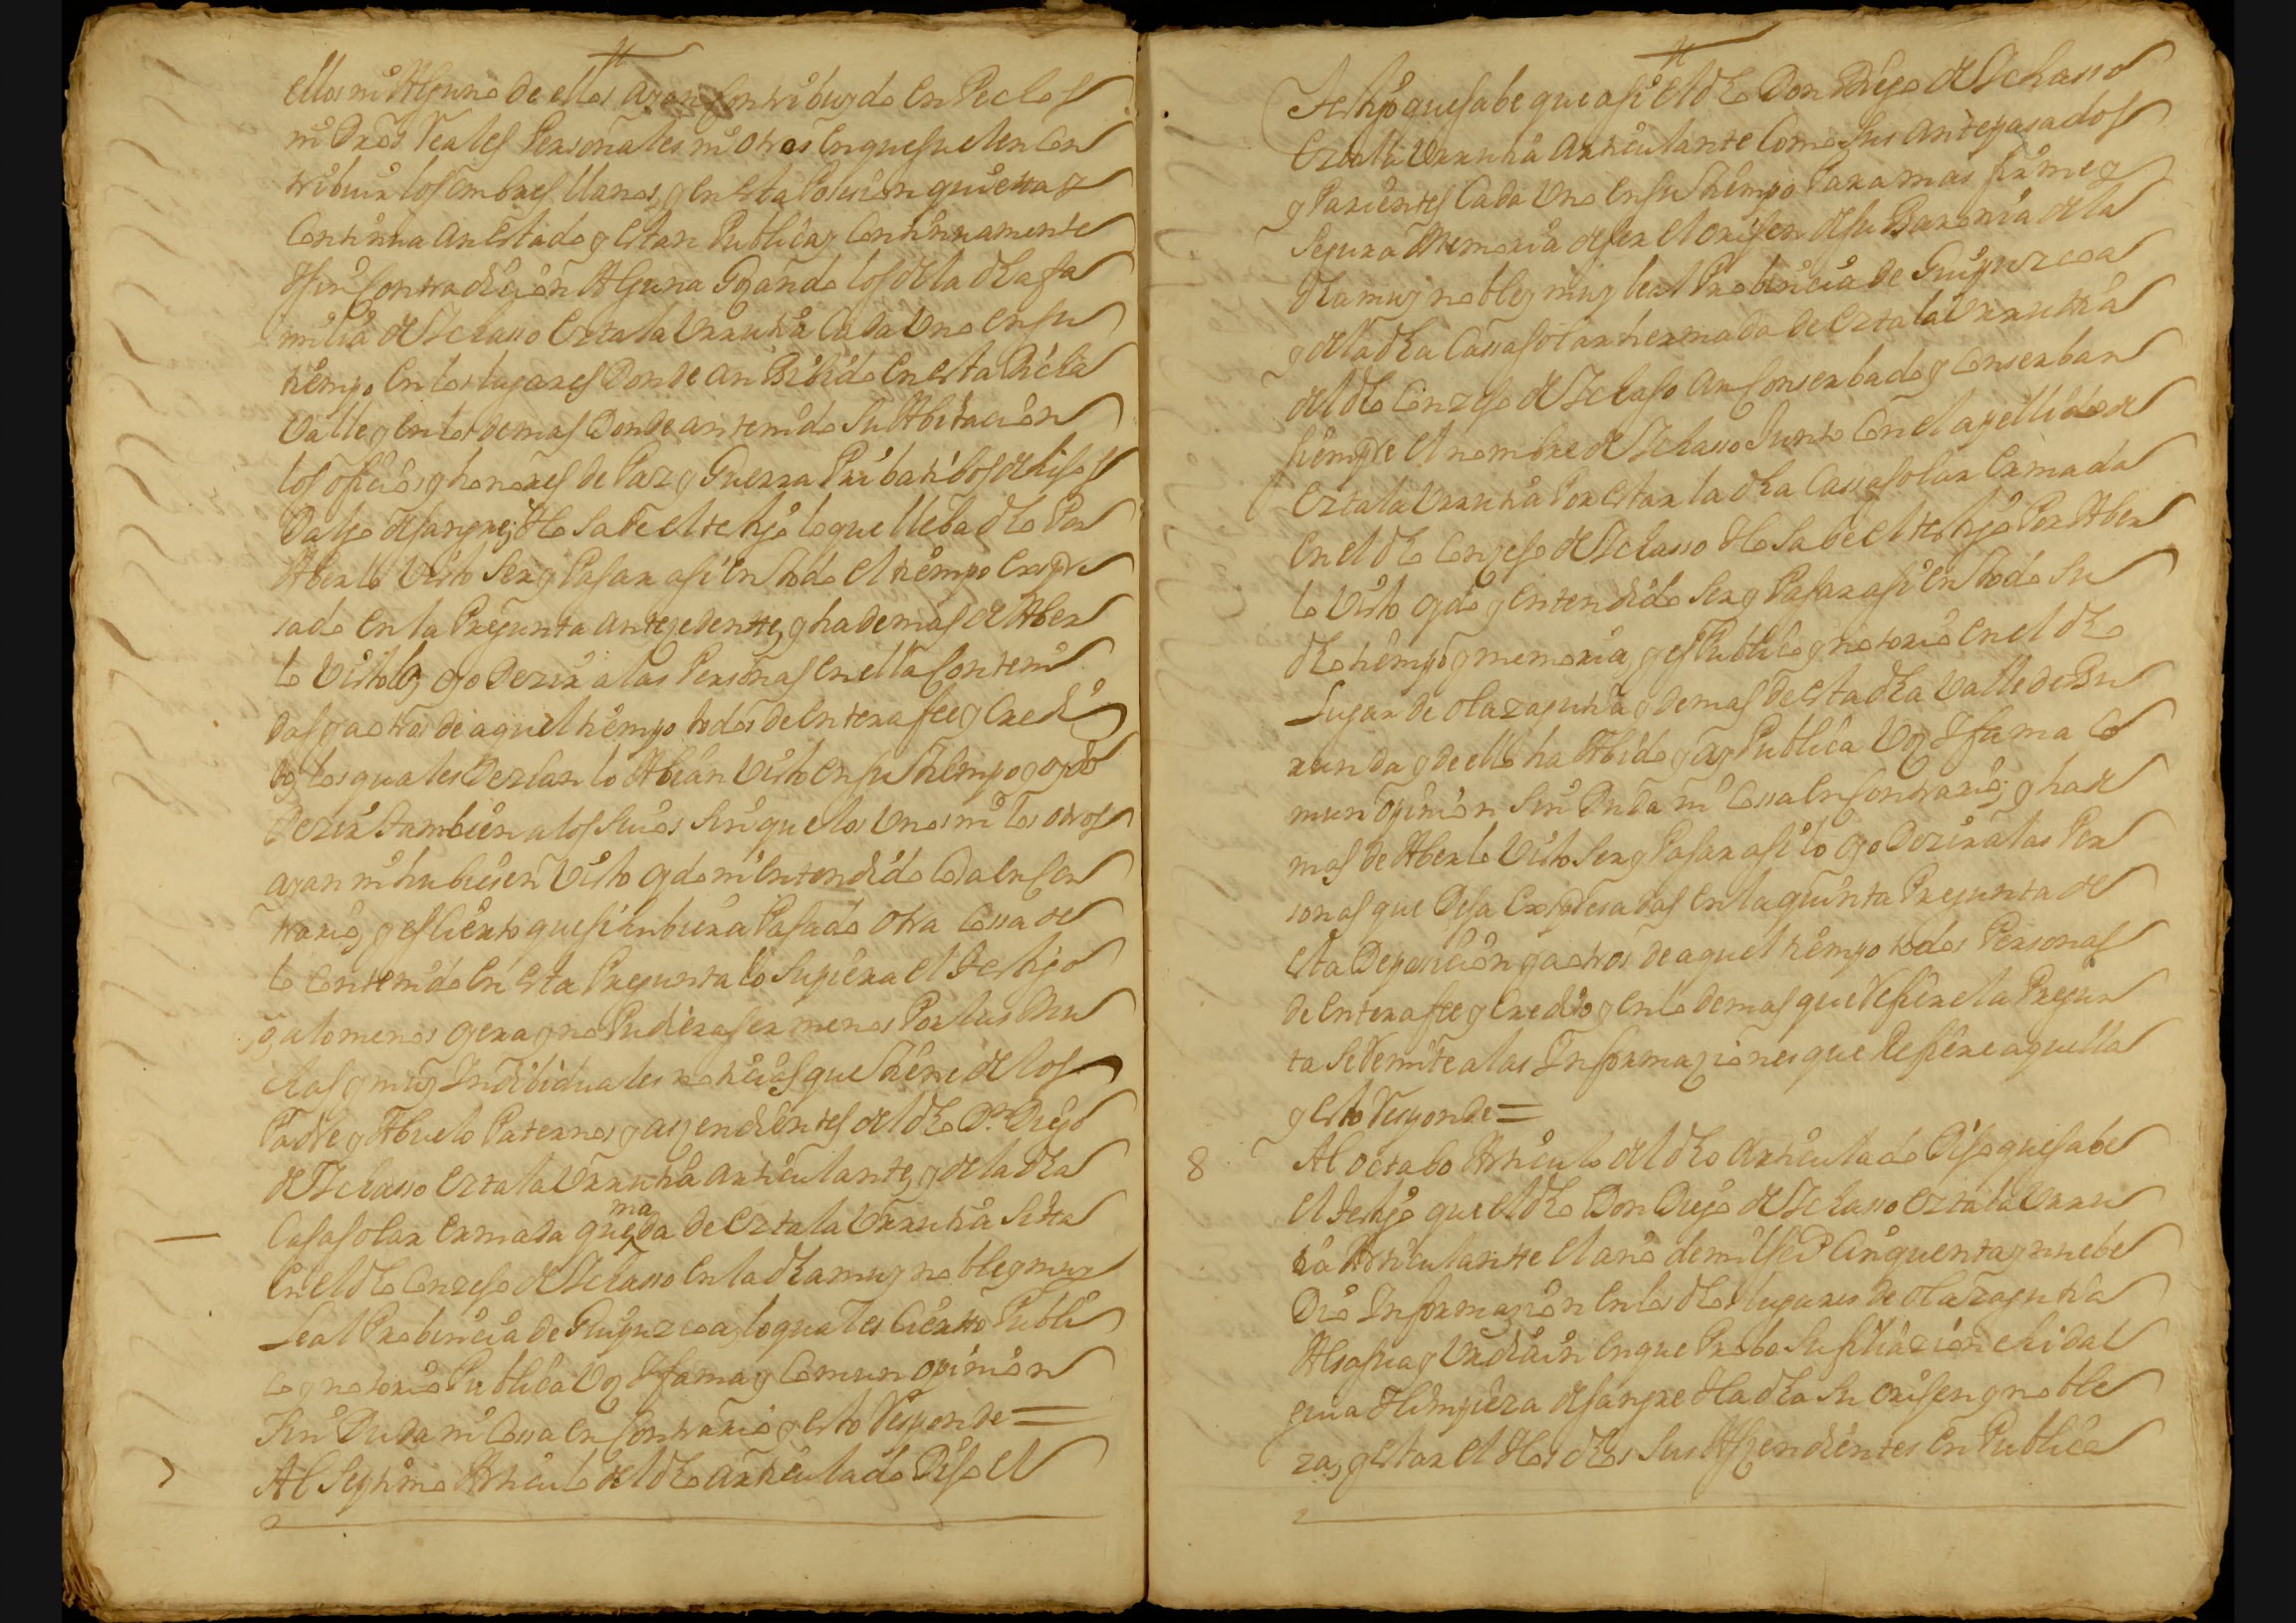 ellos ni Alguno de ellos ayan Contribuydo en Pechos
ni Dros Reales Personales ni otros en que suelen Con
tribuir los ombres llanos, y en esta Posesion quieta y
Continua an estado y estan Publica y Continuamente
Sin Contradicion Alguna Gozando los de la dha fa
milia de Ichasso Eztala Urrutia Cada Uno en su
tiempo en los lugares Donde an Bibido en esta Dicha
Valle y en los demas Donde an tenido Su Abitacion
los oficios y honores de Paz y Guerra Pribatibos de hijos
Dalgo de sangre, Y lo Sabe el testigo lo que lleba dho Por
Aberlo Visto Ser y Pasar asi en todo el tiempo Expre
sado en la Pregunta antezedente, y ha demas de Aber
lo Visto lo oyo Dezir a las Personas en ella Conteni
das y a otras de aquel tiempo todos de entera fee y Credi
to, los quales Dezian lo Abian Visto en su tiempo y oydo
Dezir tambien a los Suios Sin que los Unos ni los otros
ayan ni hubiesen Visto oydo ni entendido Cosa en Con
trario, y es Cierto que si hubiera Pasado otra Cossa de
lo Contenido en esta Pregunta lo Supiera el Testigo
y a lo menos oyera y no Pudiera ser menos Por las Mu
chas y muy Indibiduales noticias que tiene de los
Padre y Abuelo Paternos y aszendientes del dho Dn Diego
de Ichasso Eztala Urrutia articulante, y de la dha
Casa solar ermada que da de Eztala Urrutia Sitta
ma
en el dho Conzejo de Ichasso en la dha muy noble y muy
Leal Probincia de Guipuzcoa, lo qual es Cierto Publi
co y notorio Publica Voz y fama y Comun opinion
Sin Duda ni Cossa en Contrario y esto Responde =
7 Al Septimo Articulo del dho articulado Dijo el
Testigo que sabe que asi el dho Don Diego de Ichasso
Eztala Urrutia articulante Como Sus antepasados
y Parientes Cada Uno en su tiempo Para mas firme y
Segura Memoria de ser el orijen de su Baronia de la
dha muy noble y muy leal Probincia de Guipuzcoa
y de la dha Cassa solar hermada de Eztala Urrutia
del dho Conzejo de Ichaso an Conserbado y Conserban
siempre el nombre de Ichasso Junto Con el apellido de
Eztala Urrutia Por estar la dha Cassa solar Ermada
en el dho Conzejo de Ichasso Y lo Sabe el testigo Por Aber
lo Visto oydo y entendido Ser y Pasar asi en todo Su
dho tiempo y memoria, y es Publico y notorio en el dho
Lugar de olazagutia y demas de esta dha Valle de Bu
runda y de ello ha Abido y ay Publica Voz Y fama Co
mun opinion Sin Duda ni Cossa en Contrario; y ha de
mas de Aberlo Visto Ser y Pasar asi lo oyo Dezir a las Per
sonas que Deja Expresadas en la quinta Pregunta de
esta Deposicion y a otros de aquel tiempo todos Personas
de entera fee y Credito y en lo demas que Refiere la Pregun
ta Se Remite a las Informaziones que Refiere aquella
y esto Responde =
8 Al octabo Articulo del dho articulado Dijo que sabe
el testigo que el dho Don Diego de Ichasso Eztala Urru
tia Articulante el ano de mil seis Cinquenta y nuebe
Dio Informazion en los dhos lugares de olazagutia
Alsasua y Urdiain en que Probo Su filiazion hidal
guia Y limpieza de sangre Y la dha Su orijen y noble
za, y estar el Y los dhos Sus Aszendientes en Publica